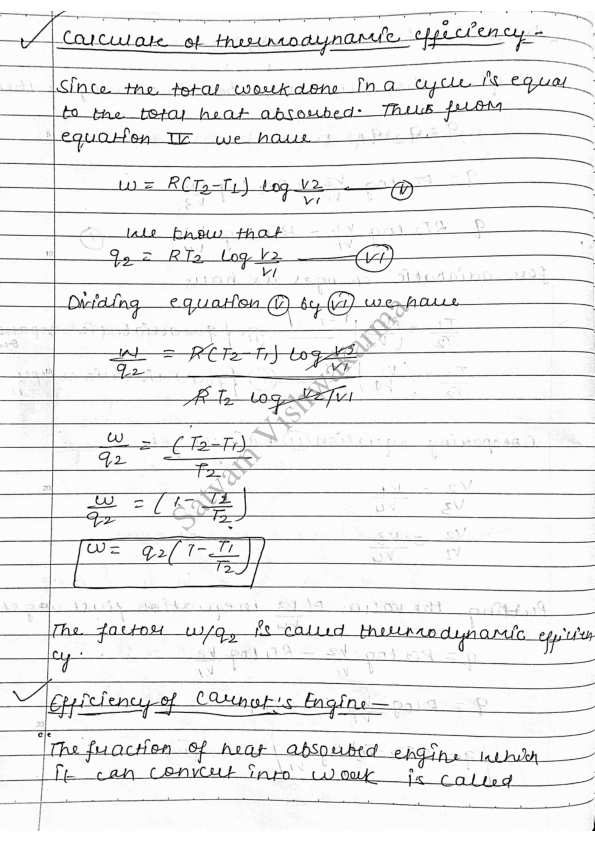 Calculate of thermodynamic efficiency -
Since the total workdone in a cycle is equal
to the total heat absorbed. Thus from
equation IV we have
w = R(T2-T1) log V2/V1 — (V)
We know that
q2 = RT2 log V2/V1 — (VI)
Dividing equation (V) by (VI) we have
w/q2 = R(T2-T1) log V2/V1
R T2 log V2/V1
w/q2 = (T2-T1)/T2
w/q2 = (1 - T1/T2)
w = q2 (1 - T1/T2)
The factor w/q2 is called thermodynamic efficien
cy.
Efficiency of Carnot's Engine —
The fraction of heat absorbed engine which
it can convert into work is called
Satvam Vishwakarma